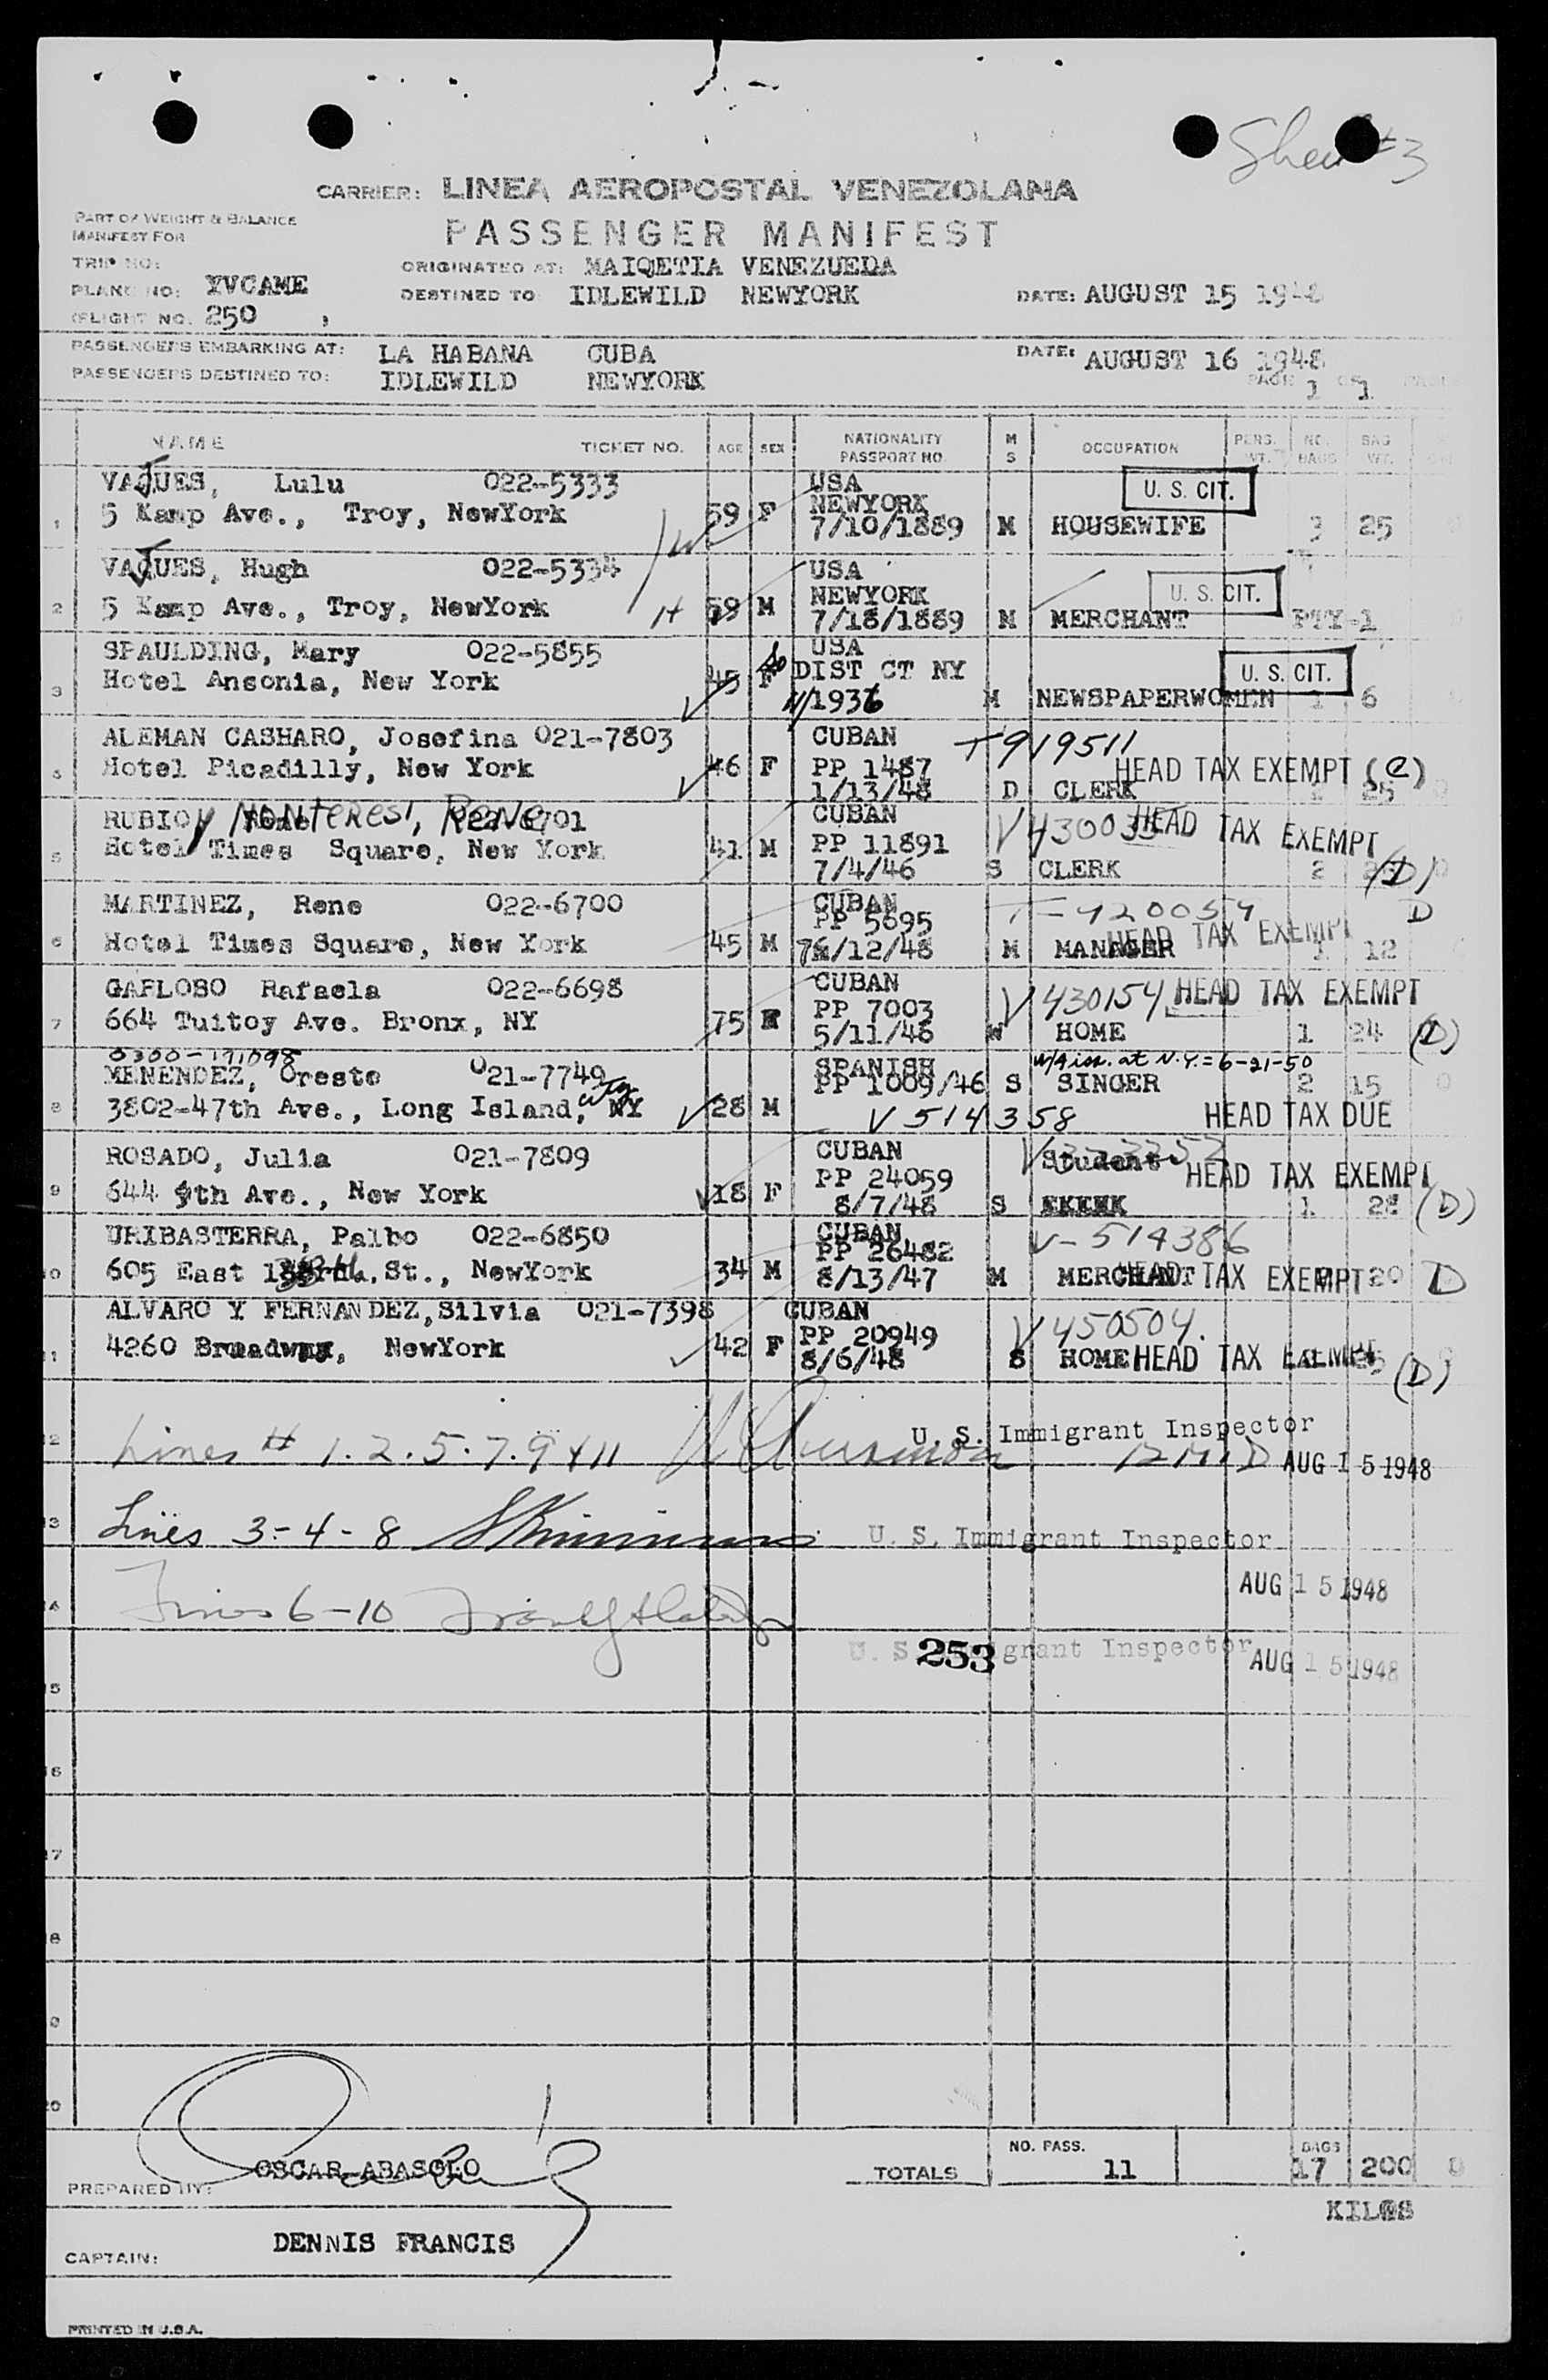 Sheet #3
CARRIER: LINEA AEROPOSTAL VENEZOLANA
PART OF WEIGHT & BALANCE
MANIFEST FOR
PASSENGER MANIFEST
TRIP NO:
ORIGINATED AT: MAIQETIA VENEZUELA
PLANE NO: YVCAME
DESTINED TO IDLEWILD NEWYORK DATE: AUGUST 15 1948
FLIGHT NO. 250 ,
PASSENGERS EMBARKING AT: LA HABANA CUBA DATE: AUGUST 16 1948
PASSENGERS DESTINED TO: IDLEWILD NEWYORK PAGE 1 OF 1
NAME TICKET NO. AGE SEX NATIONALITY PASSPORT NO. M S OCCUPATION PERS. WT. NO. BAGS BAG WT.
VAJUES, Lulu 022-5333 USA U. S. CIT.
NEWYORK
1 5 Kamp Ave., Troy, NewYork 59 F 7/10/1889 M HOUSEWIFE 3 25
VAJUES, Hugh 022-5334 USA U. S. CIT.
NEWYORK
2 5 Kamp Ave., Troy, NewYork 59 M 7/18/1889 M MERCHANT PTY-1
SPAULDING, Mary 022-5855 USA
3 Hotel Ansonia, New York 45 F So DIST CT NY U. S. CIT.
11/1936 M NEWSPAPERWOMEN 1 6
ALEMAN CASHARO, Josefina 021-7803 CUBAN T919511
Hotel Picadilly, New York 46 F PP 1487 HEAD TAX EXEMPT (C)
1/13/48 D CLERK 25
RUBIO y MONTERESI, RENE 701 CUBAN V430033 HEAD TAX EXEMPT
5 Hotel Times Square, New York 41 M PP 11891
7/4/46 S CLERK 2 (D)
MARTINEZ, Rene 022-6700 CUBAN T-420054 D
PP 5695 HEAD TAX EXEMPT
6 Hotel Times Square, New York 45 M /12/48 M MANAGER 1 12
GAFLOSO Rafaela 022-6698 CUBAN V430154 HEAD TAX EXEMPT
7 664 Tuitoy Ave. Bronx, NY 75 PP 7003
5/11/46 W HOME 1 24 (D)
0300-171098 W/A iss. at N.Y. = 6-21-50
MENENDEZ, Oreste 021-7749 SPANISH
PP 1009/46 S SINGER 2 15
8 3802-47th Ave., Long Island, City NY 28 M V514358 HEAD TAX DUE
ROSADO, Julia 021-7809 CUBAN Student HEAD TAX EXEMPT
9 644 9th Ave., New York 18 F PP 24059
8/7/48 S 1 28 (D)
URIBASTERRA, Palbo 022-6850 CUBAN V-514386
PP 26482
10 605 East St., NewYork 34 M 8/13/47 M MERCHANT HEAD TAX EXEMPT 20 D
ALVARO Y FERNANDEZ, Silvia 021-7398 CUBAN V450504.
11 4260 Broadway, NewYork 42 F PP 20949
8/6/48 S HOME HEAD TAX EXEMPT (D)
U. S. Immigrant Inspector
12 Lines # 1.2.5.7.9 & 11 AUG 15 1948
13 Lines 3-4-8 U. S. Immigrant Inspector
AUG 15 1948
Lines 6-10
U. S. 253 grant Inspector AUG 15 1948
15
16
17
18
19
20
NO. PASS. BAGS
TOTALS 11 17 200
PREPARED BY: OSCAR ABASOLO
KILOS
CAPTAIN: DENNIS FRANCIS
PRINTED IN U.S.A.